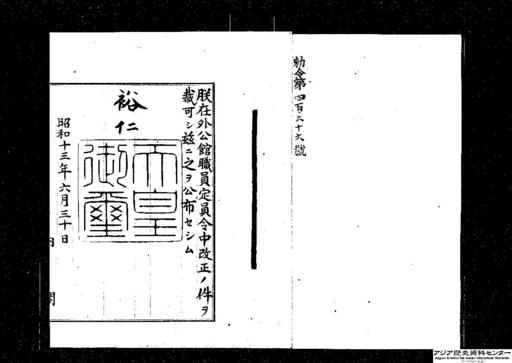 勅令第四百六十六號
朕在外公館職員定員令中改正ノ件ヲ
裁可シ玆ニ之ヲ公布セシム
裕仁
天皇
御璽
昭和十三年六月三十日
アジア歴史資料センター
Japan Center for Asian Historical Records